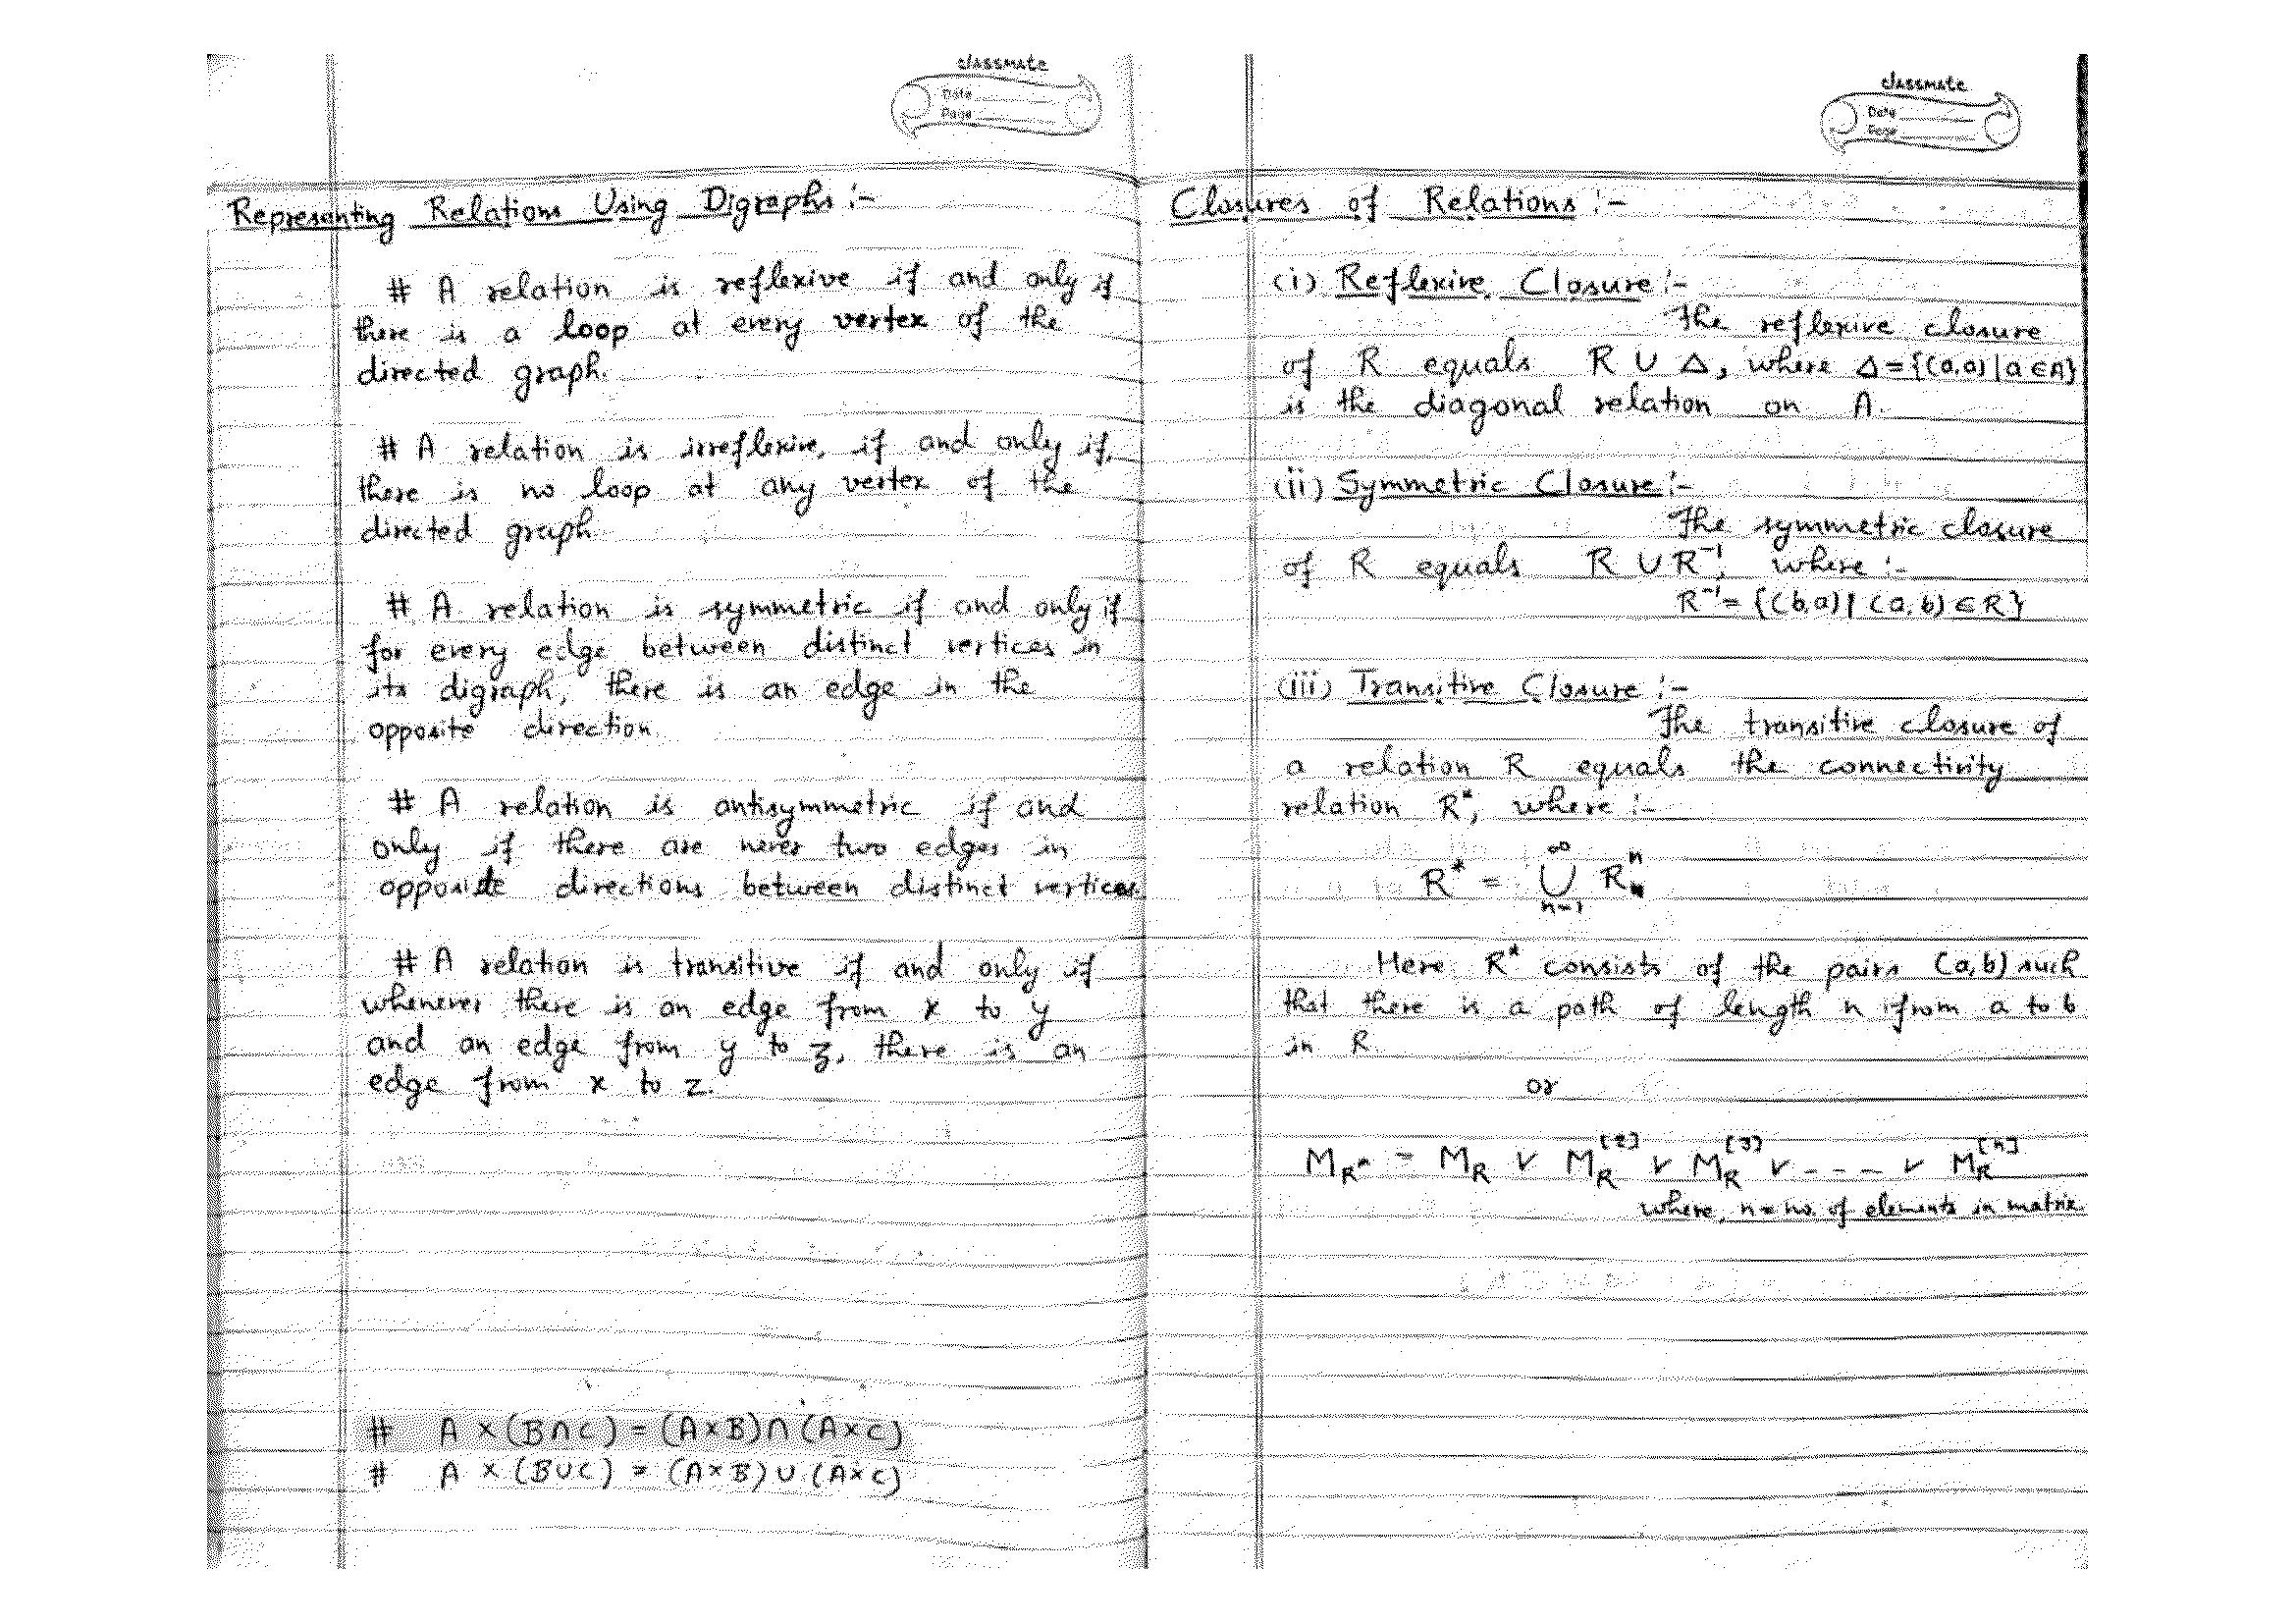 classmate
Date
Page
Representing Relations Using Digraphs :-
# A relation is reflexive if and only if
there is a loop at every vertex of the
directed graph.
# A relation is irreflexive, if and only if,
there is no loop at any vertex of the
directed graph
# A relation is symmetric if and only if
for every edge between distinct vertices in
its digraph, there is an edge in the
opposite direction.
# A relation is antisymmetric if and
only if there are never two edges in
opposite directions between distinct vertices.
# A relation is transitive if and only if
whenever there is an edge from x to y
and an edge from y to z, there is an
edge from x to z.
# A × (B∩C) = (A×B)∩(A×C)
# A × (B∪C) = (A×B)∪(A×C)
classmate
Date
Page
Closures of Relations :-
(i) Reflexive Closure :-
The reflexive closure
of R equals R ∪ Δ, where Δ={(a,a)|a∈A}
is the diagonal relation on A.
(ii) Symmetric Closure :-
The symmetric closure
of R equals R ∪ R⁻¹, where :-
R⁻¹= {(b,a)| (a,b) ∈ R}
(iii) Transitive Closure :-
The transitive closure of
a relation R equals the connectivity
relation R*, where :-
R* = ∞⋃n=1 Rⁿ
Here R* consists of the pairs (a,b) such
that there is a path of length n from a to b
in R.
or
M_R* = M_R ∨ M_R^[2] ∨ M_R^[3] ∨ - - - - ∨ M_R^[n]
where, n = no. of elements in matrix.